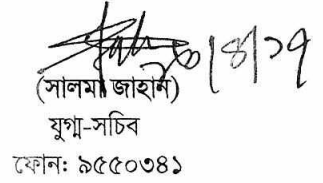 ২০/৪/১৭
(সালমা জাহান)
যুগ্ম-সচিব
ফোন: ৯৫৫০৩৪১